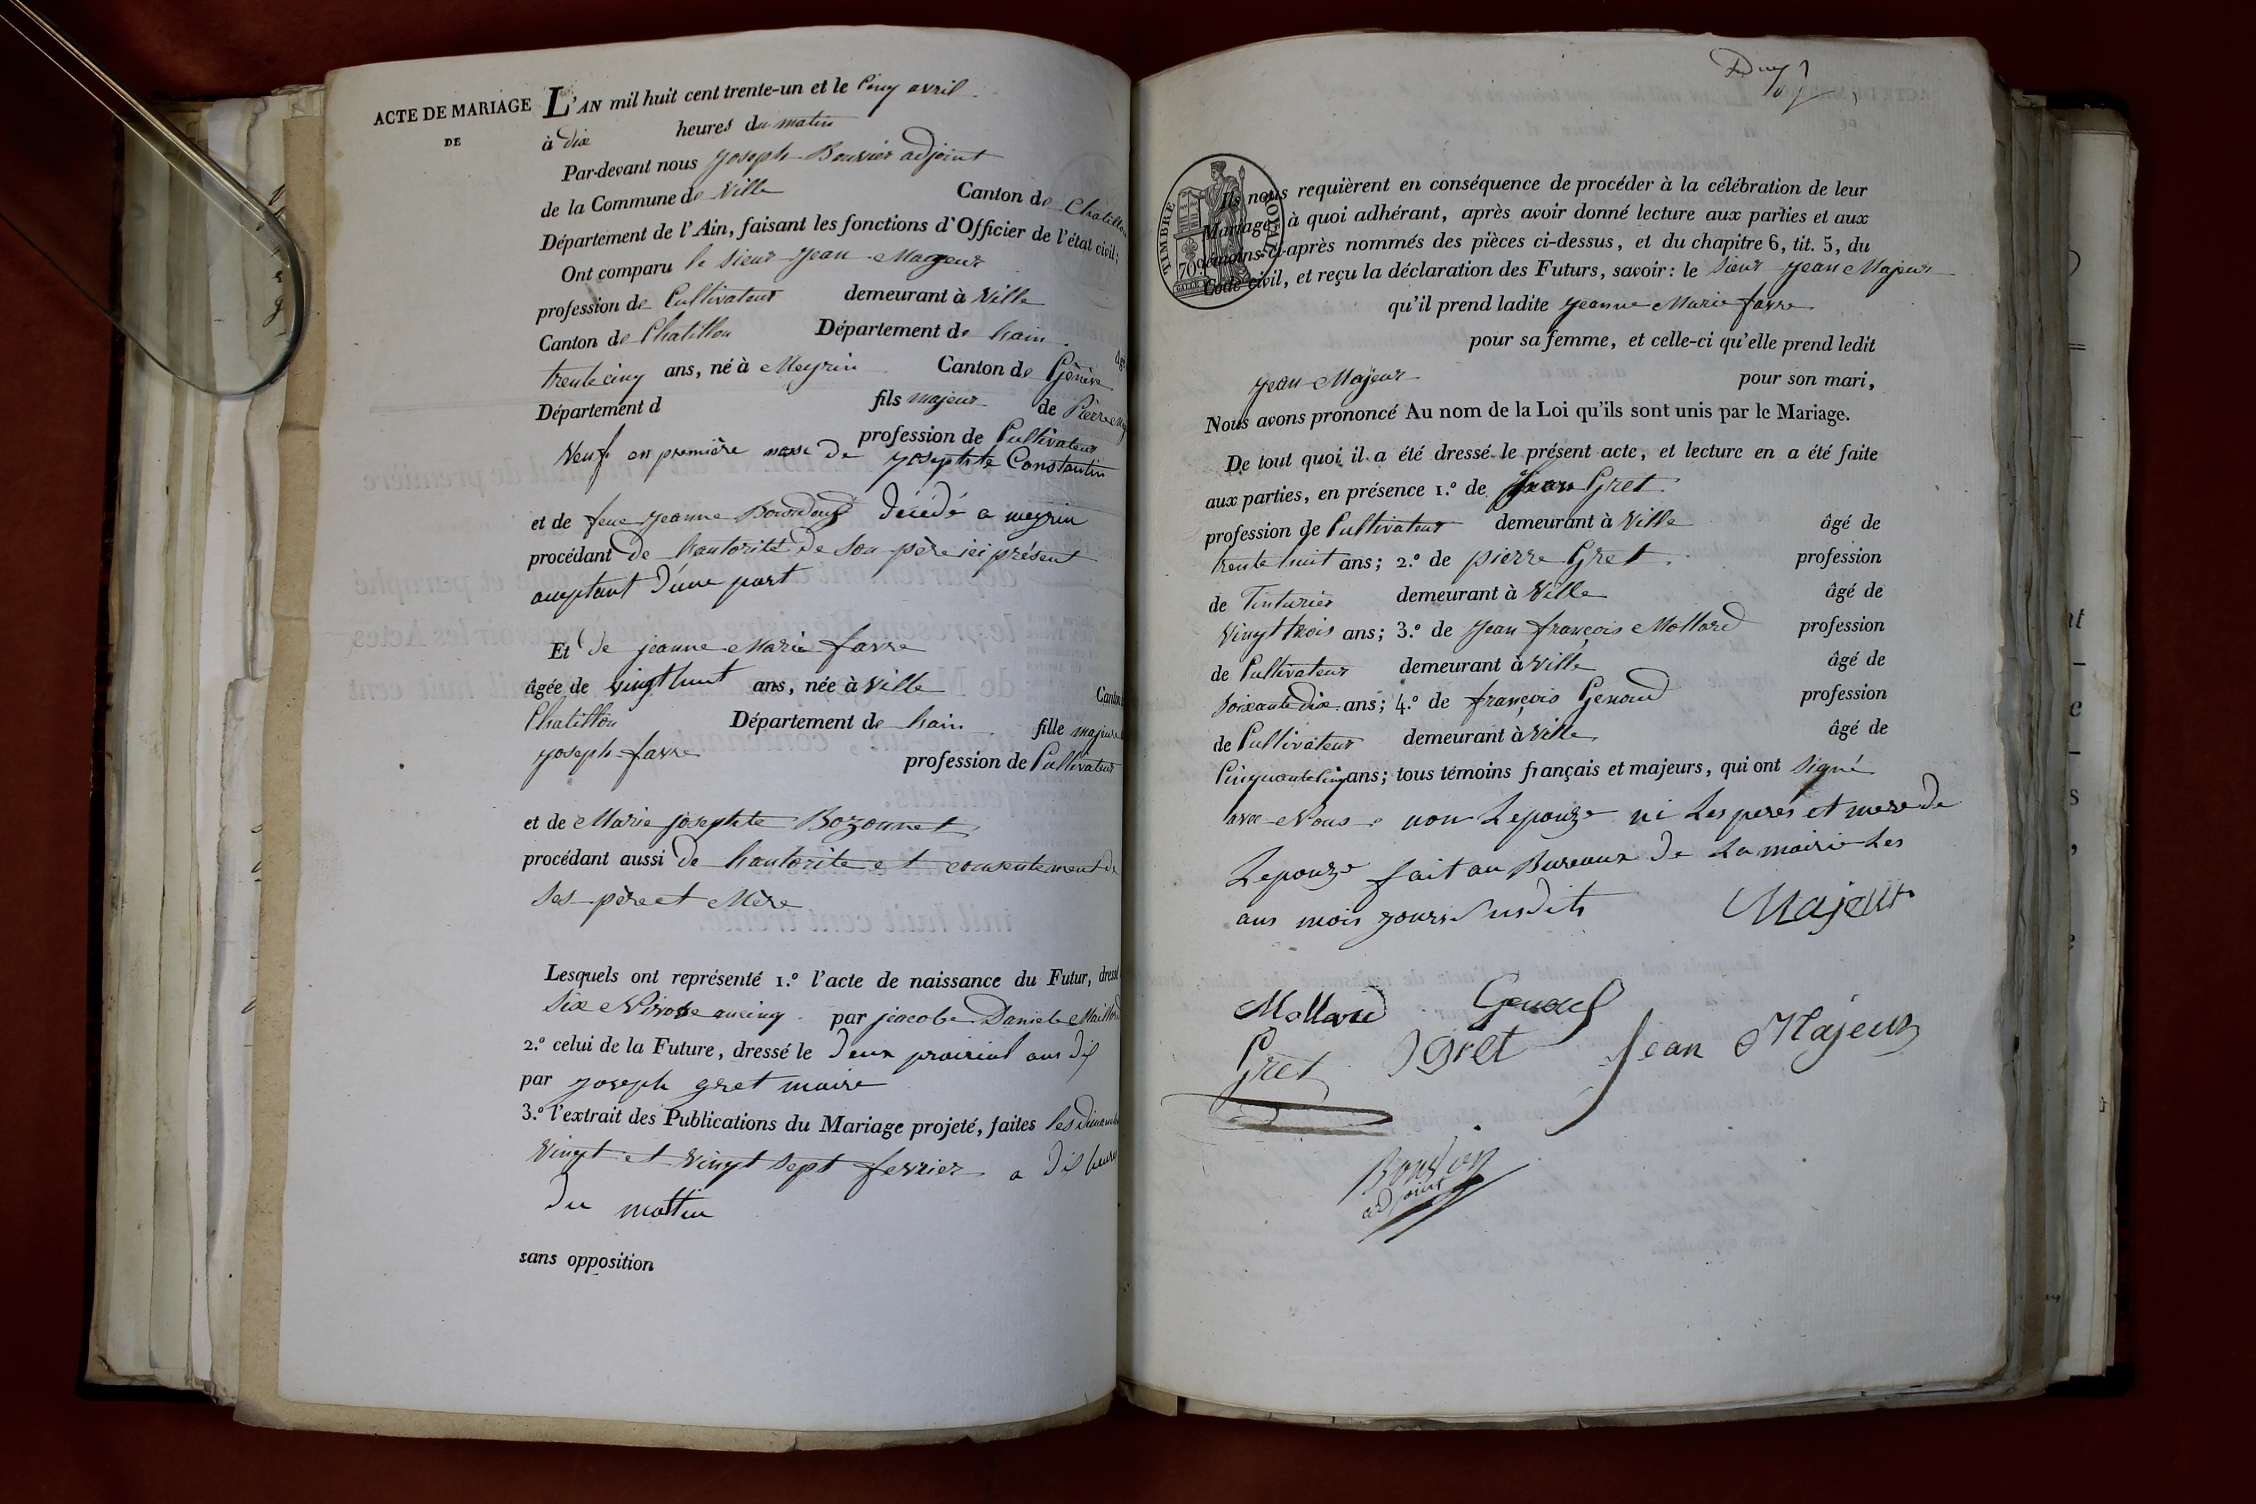 ACTE DE MARIAGE
DE
L'AN mil huit cent trente-un et le Cinq avril
à dix heures du matin
Par-devant nous Joseph Bouvier adjoint
de la Commune de Ville Canton de Chatillon
Département de l'Ain, faisant les fonctions d'Officier de l'état civil;
Ont comparu le sieur Jean Majeur
profession de Cultivateur demeurant à Ville
Canton de Chatillon Département de hain
trente cinq ans, né à Meyrin Canton de Génève
Département d fils majeur de Pierre
profession de Cultivateur
Veuf en première nosse de Josephte Constantin
et de feue Jeanne décédé a meyrin
procédant de hautorité de son père ici présent
aceptant d'une part
Et de jeanne Marie favre
âgée de vingt huit ans, née à Ville Canton
Chatillon Département de hain fille majeure
Joseph favre profession de Cultivateur
et de Marie josephte Bozonnet
procédant aussi de hautorite et consentement de
ses père et Mère
Lesquels ont représenté 1.º l'acte de naissance du Futur, dressé
Six Nivose an cinq par jacob Daniel
2.º celui de la Future, dressé le deux prairial ans dix
par Joseph gret maire
3.º l'extrait des Publications du Mariage projeté, faites les dimanche
Vingt et Vingt sept fevrier a dix heures
du mattin
sans opposition
TIMBRE ROYAL
70
Ils nous requièrent en conséquence de procéder à la célébration de leur
Mariage, à quoi adhérant, après avoir donné lecture aux parties et aux
témoins ci-après nommés des pièces ci-dessus, et du chapitre 6, tit. 5, du
Code civil, et reçu la déclaration des Futurs, savoir: le sieur Jean Majeur
qu'il prend ladite Jeanne Marie favre
pour sa femme, et celle-ci qu'elle prend ledit
Jean Majeur pour son mari,
Nous avons prononcé Au nom de la Loi qu'ils sont unis par le Mariage.
De tout quoi il a été dressé le présent acte, et lecture en a été faite
aux parties, en présence 1.º de Jean Gret
profession de Cultivateur demeurant à Ville âgé de
trente huit ans; 2.º de pierre Gret profession
de Tinturier demeurant à Ville âgé de
Vingt trois ans; 3.º de Jean françois Mollard profession
de Cultivateur demeurant à Ville âgé de
Soixante dix ans; 4.º de françois Genoud profession
de Cultivateur demeurant à Ville âgé de
Cinquante cinq ans; tous témoins français et majeurs, qui ont signé
avec Nous non Lepouze ni Les peres et mere de
Lepouze fait au Bureaux de La mairie Les
ans mois jours susdits Majeur
Mollard Genoud
Gret Gret Jean Majeur
Bouvier
adjoint